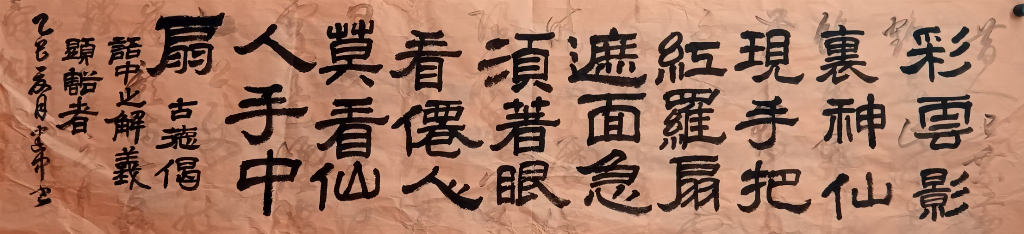 彩雲影
裏神仙
現手把
紅羅扇
遮面急
須著眼
看僊人
莫看仙
人手中
扇 古德偈
語中之解義
顯豁者
乙巳夏月中書